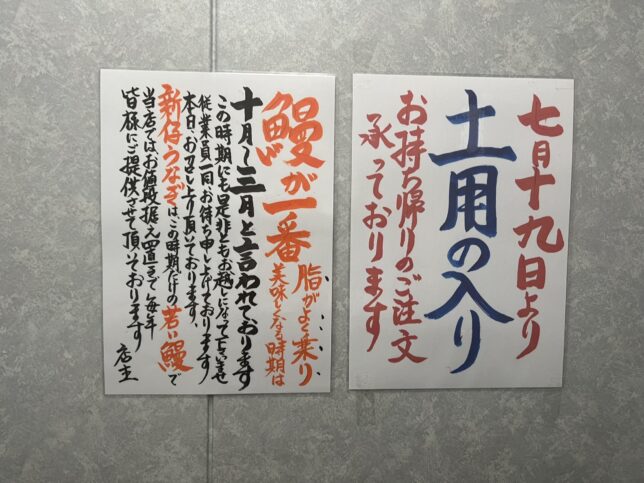 七月十九日より
土用の入り
お持ち帰りのご注文
承っております
鰻が一番
脂がよく乗り
美味しくなる時期は
十月〜三月と言われております
この時期にも是非ともお越しになって下さいませ
従業員一同、お待ち申し上げております
本日、お召し上り頂いております、
新仔うなぎはこの時期だけの若い鰻で
当店ではお値段据え置きで毎年
皆様にご提供させて頂いております
店主